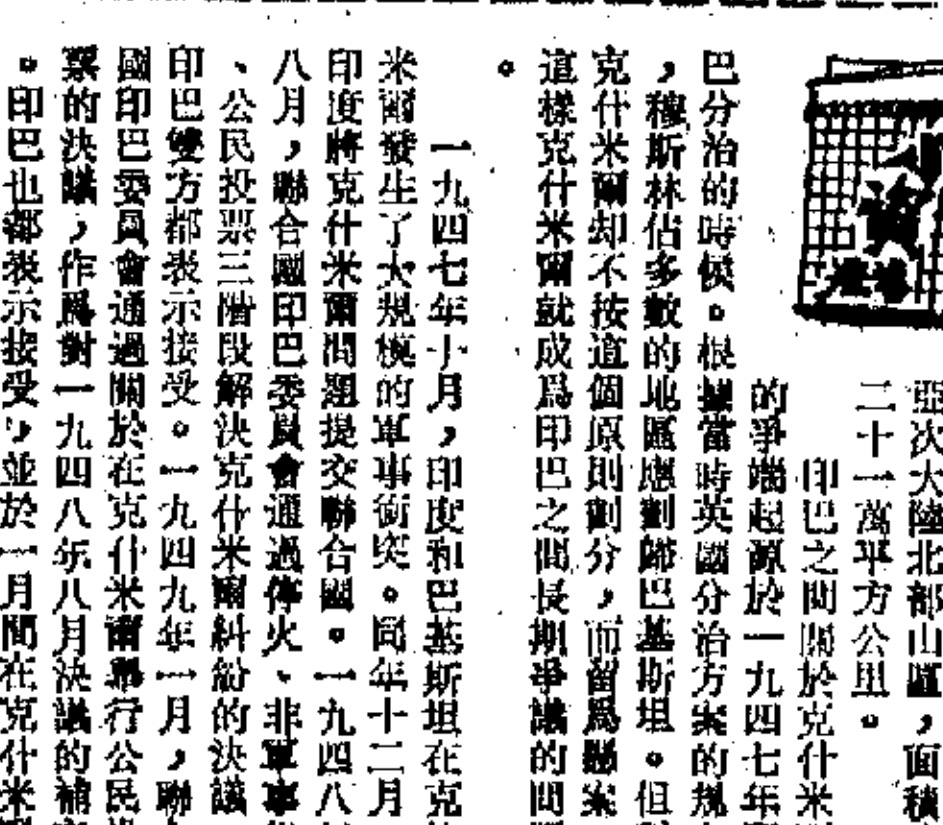 亞次大陸北部山區，面積
二十一萬平方公里。
印巴之間關於克什米
的爭端起源於一九四七年
巴分治的時候。根據當時英國分治方案的規
，穆斯林佔多數的地區應劃歸巴基斯坦。但
克什米爾却不按這個原則劃分，而留爲懸案
這樣克什米爾就成爲印巴之間長期爭議的問
。
一九四七年十月，印度和巴基斯坦在克
米爾發生了大規模的軍事衝突。同年十二月
印度將克什米爾問題提交聯合國。一九四八
八月，聯合國印巴委員會通過停火、非軍事
、公民投票三階段解決克什米爾糾紛的決議
印巴雙方都表示接受。一九四九年一月，聯
國印巴委員會通過關於在克什米爾舉行公民
票的決議，作爲對一九四八年八月決議的補
。印巴也都表示接受，並於一月間在克什米